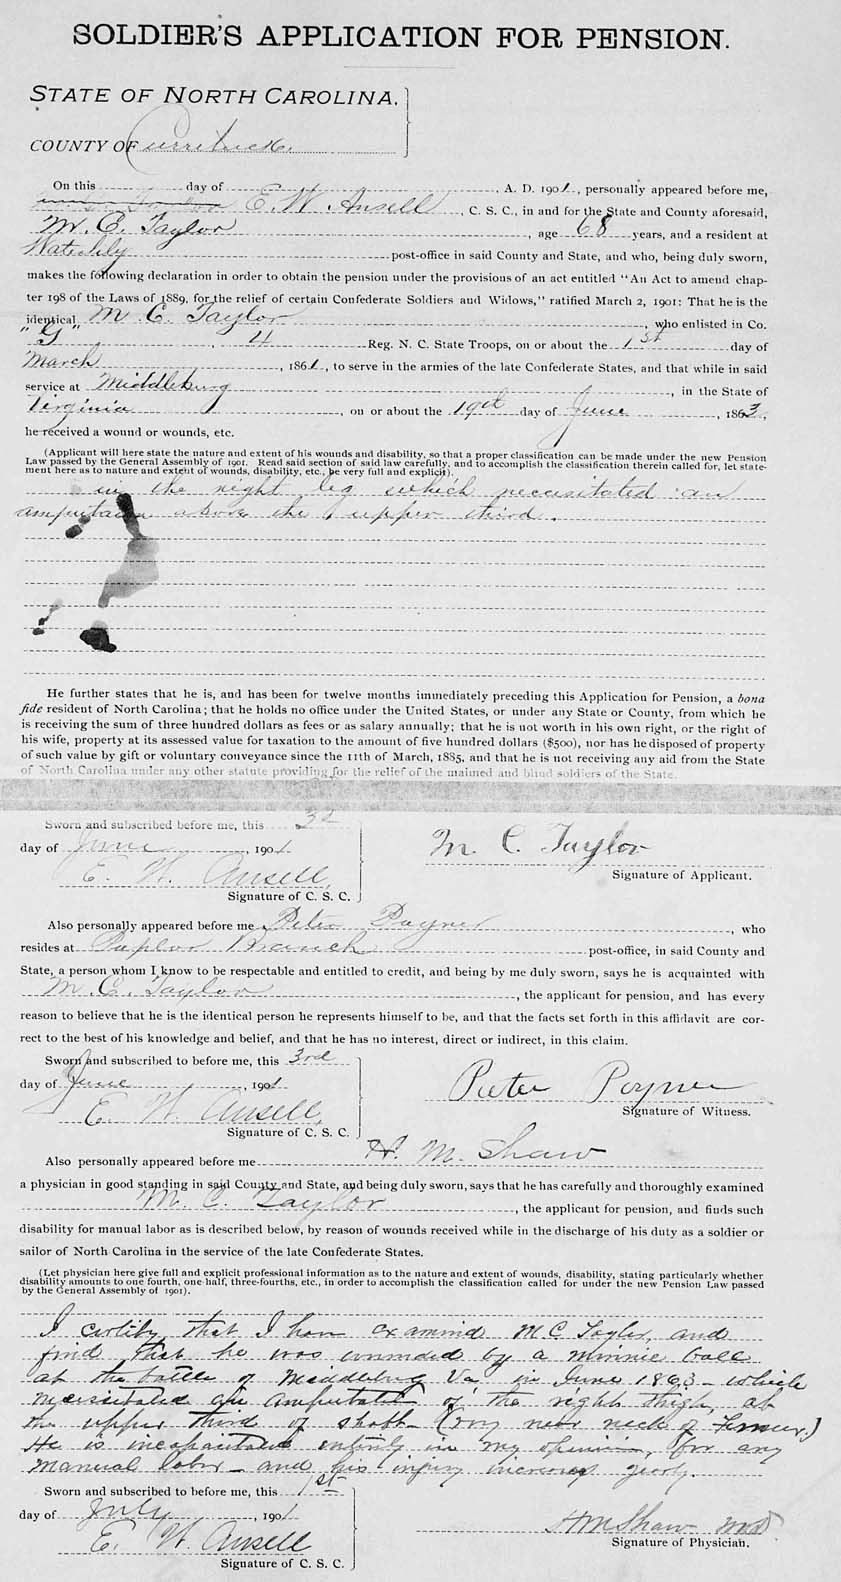 SOLDIER'S APPLICATION FOR PENSION.
STATE OF NORTH CAROLINA.
COUNTY OF Currituck.
On this day of , A. D. 1901, personally appeared before me,
E. W. Ansell, C. S. C., in and for the State and County aforesaid,
M. C. Taylor, age 68 years, and a resident at
post-office in said County and State, and who, being duly sworn,
makes the following declaration in order to obtain the pension under the provisions of an act entitled "An Act to amend chap-
ter 198 of the Laws of 1889, for the relief of certain Confederate Soldiers and Widows," ratified March 2, 1901: That he is the
identical M. C. Taylor, who enlisted in Co.
"G" 4 Reg. N. C. State Troops, on or about the 1st day of
March, 1861, to serve in the armies of the late Confederate States, and that while in said
service at Middleburg, in the State of
Virginia, on or about the 19th day of June, 1863,
he received a wound or wounds, etc.
(Applicant will here state the nature and extent of his wounds and disability, so that a proper classification can be made under the new Pension
Law passed by the General Assembly of 1901. Read said section of said law carefully, and to accomplish the classification therein called for, let state-
ment here as to nature and extent of wounds, disability, etc., be very full and explicit).
in the right leg which necessitated an
amputation above the upper third.
He further states that he is, and has been for twelve months immediately preceding this Application for Pension, a bona
fide resident of North Carolina; that he holds no office under the United States, or under any State or County, from which he
is receiving the sum of three hundred dollars as fees or as salary annually; that he is not worth in his own right, or the right of
his wife, property at its assessed value for taxation to the amount of five hundred dollars ($500), nor has he disposed of property
of such value by gift or voluntary conveyance since the 11th of March, 1885, and that he is not receiving any aid from the State
of North Carolina under any other statute providing for the relief of the maimed and blind soldiers of the State.
Sworn and subscribed before me, this 3d
day of June, 1901
M. C. Taylor
E. W. Ansell,
Signature of Applicant.
Signature of C. S. C.
Also personally appeared before me Peter Poyner, who
resides at Poplar Branch post-office, in said County and
State, a person whom I know to be respectable and entitled to credit, and being by me duly sworn, says he is acquainted with
M. C. Taylor, the applicant for pension, and has every
reason to believe that he is the identical person he represents himself to be, and that the facts set forth in this affidavit are cor-
rect to the best of his knowledge and belief, and that he has no interest, direct or indirect, in this claim.
Sworn and subscribed to before me, this 3rd
day of June, 1901
Peter Poyner
E. W. Ansell,
Signature of Witness.
Signature of C. S. C.
Also personally appeared before me H. M. Shaw
a physician in good standing in said County and State, and being duly sworn, says that he has carefully and thoroughly examined
M. C. Taylor, the applicant for pension, and finds such
disability for manual labor as is described below, by reason of wounds received while in the discharge of his duty as a soldier or
sailor of North Carolina in the service of the late Confederate States.
(Let physician here give full and explicit professional information as to the nature and extent of wounds, disability, stating particularly whether
disability amounts to one fourth, one-half, three-fourths, etc., in order to accomplish the classification called for under the new Pension Law passed
by the General Assembly of 1901).
I certify that I have examined M C Taylor, and
find that he was wounded by a minnie ball
at the battle of Middleburg Va, in June 1863 - which
necessitated an amputation of the right thigh, at
the upper third of shaft - (very near neck of Femur.)
He is incapacitated entirely in my opinion, for any
manual labor - and his injury increases yearly.
Sworn and subscribed to before me, this 1st
day of July, 1901
H M Shaw MD
E. W. Ansell
Signature of Physician.
Signature of C. S. C.